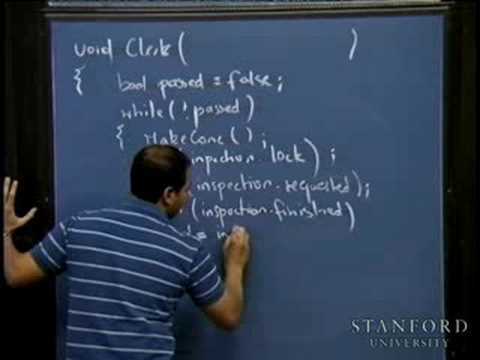 void Clerk (          )
{ bool passed = false;
while( ! passed)
{ MakeCone ( ) ;
inspection . lock ) ;
inspection . requested) ;
(inspection . finished)
= in
STANFORD
UNIVERSITY